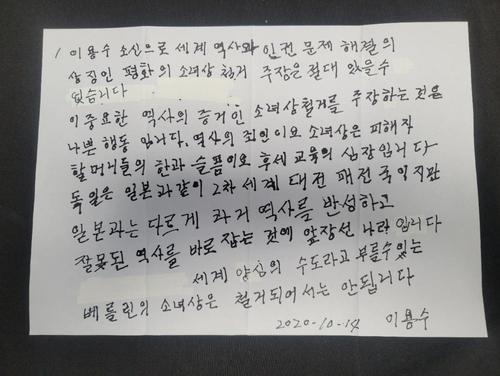 이용수 소신으로 세계 역사와 인권 문제 해결의
상징인 평화의 소녀상 철거 주장은 절대 있을수
없습니다
이 중요한 역사의 증거인 소녀상철거를 주장하는 것은
나쁜 행동 입니다. 역사의 죄인이요 소녀상은 피해자
할머니들의 한과 슬픔이요 후세 교육의 심장입니다
독일은 일본과같이 2차 세계 대전 패전국이지만
일본과는 다르게 과거 역사를 반성하고
잘못된 역사를 바로 잡는 것에 앞장선 나라 입니다
세계 양심의 수도라고 부를수있는
베를린의 소녀상은 철거되어서는 안됩니다
2020-10-14 이용수